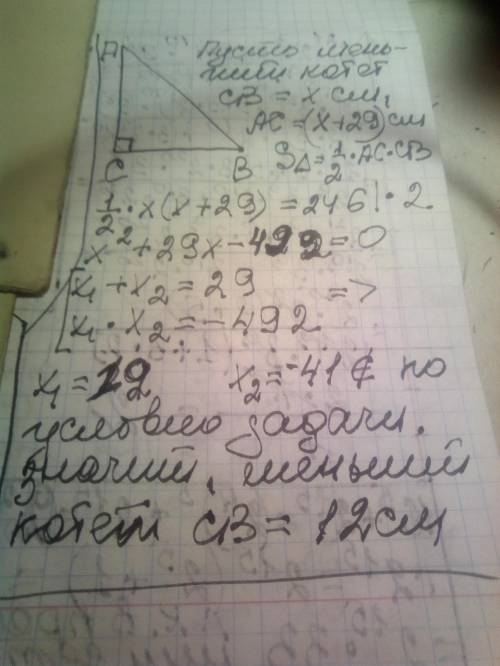 A
Пусть мень-
ший катет
CB = x см,
AC = (x+29) см
C B S△ = 1/2 · AC · CB
1/2 · x(x+29) = 246 | · 2
x² + 29x - 492 = 0
x₁ + x₂ = 29
x₁ · x₂ = -492 =>
x₁ = 12 x₂ = -41 ∉ по
условию задачи.
Значит, меньший
катет CB = 12 см